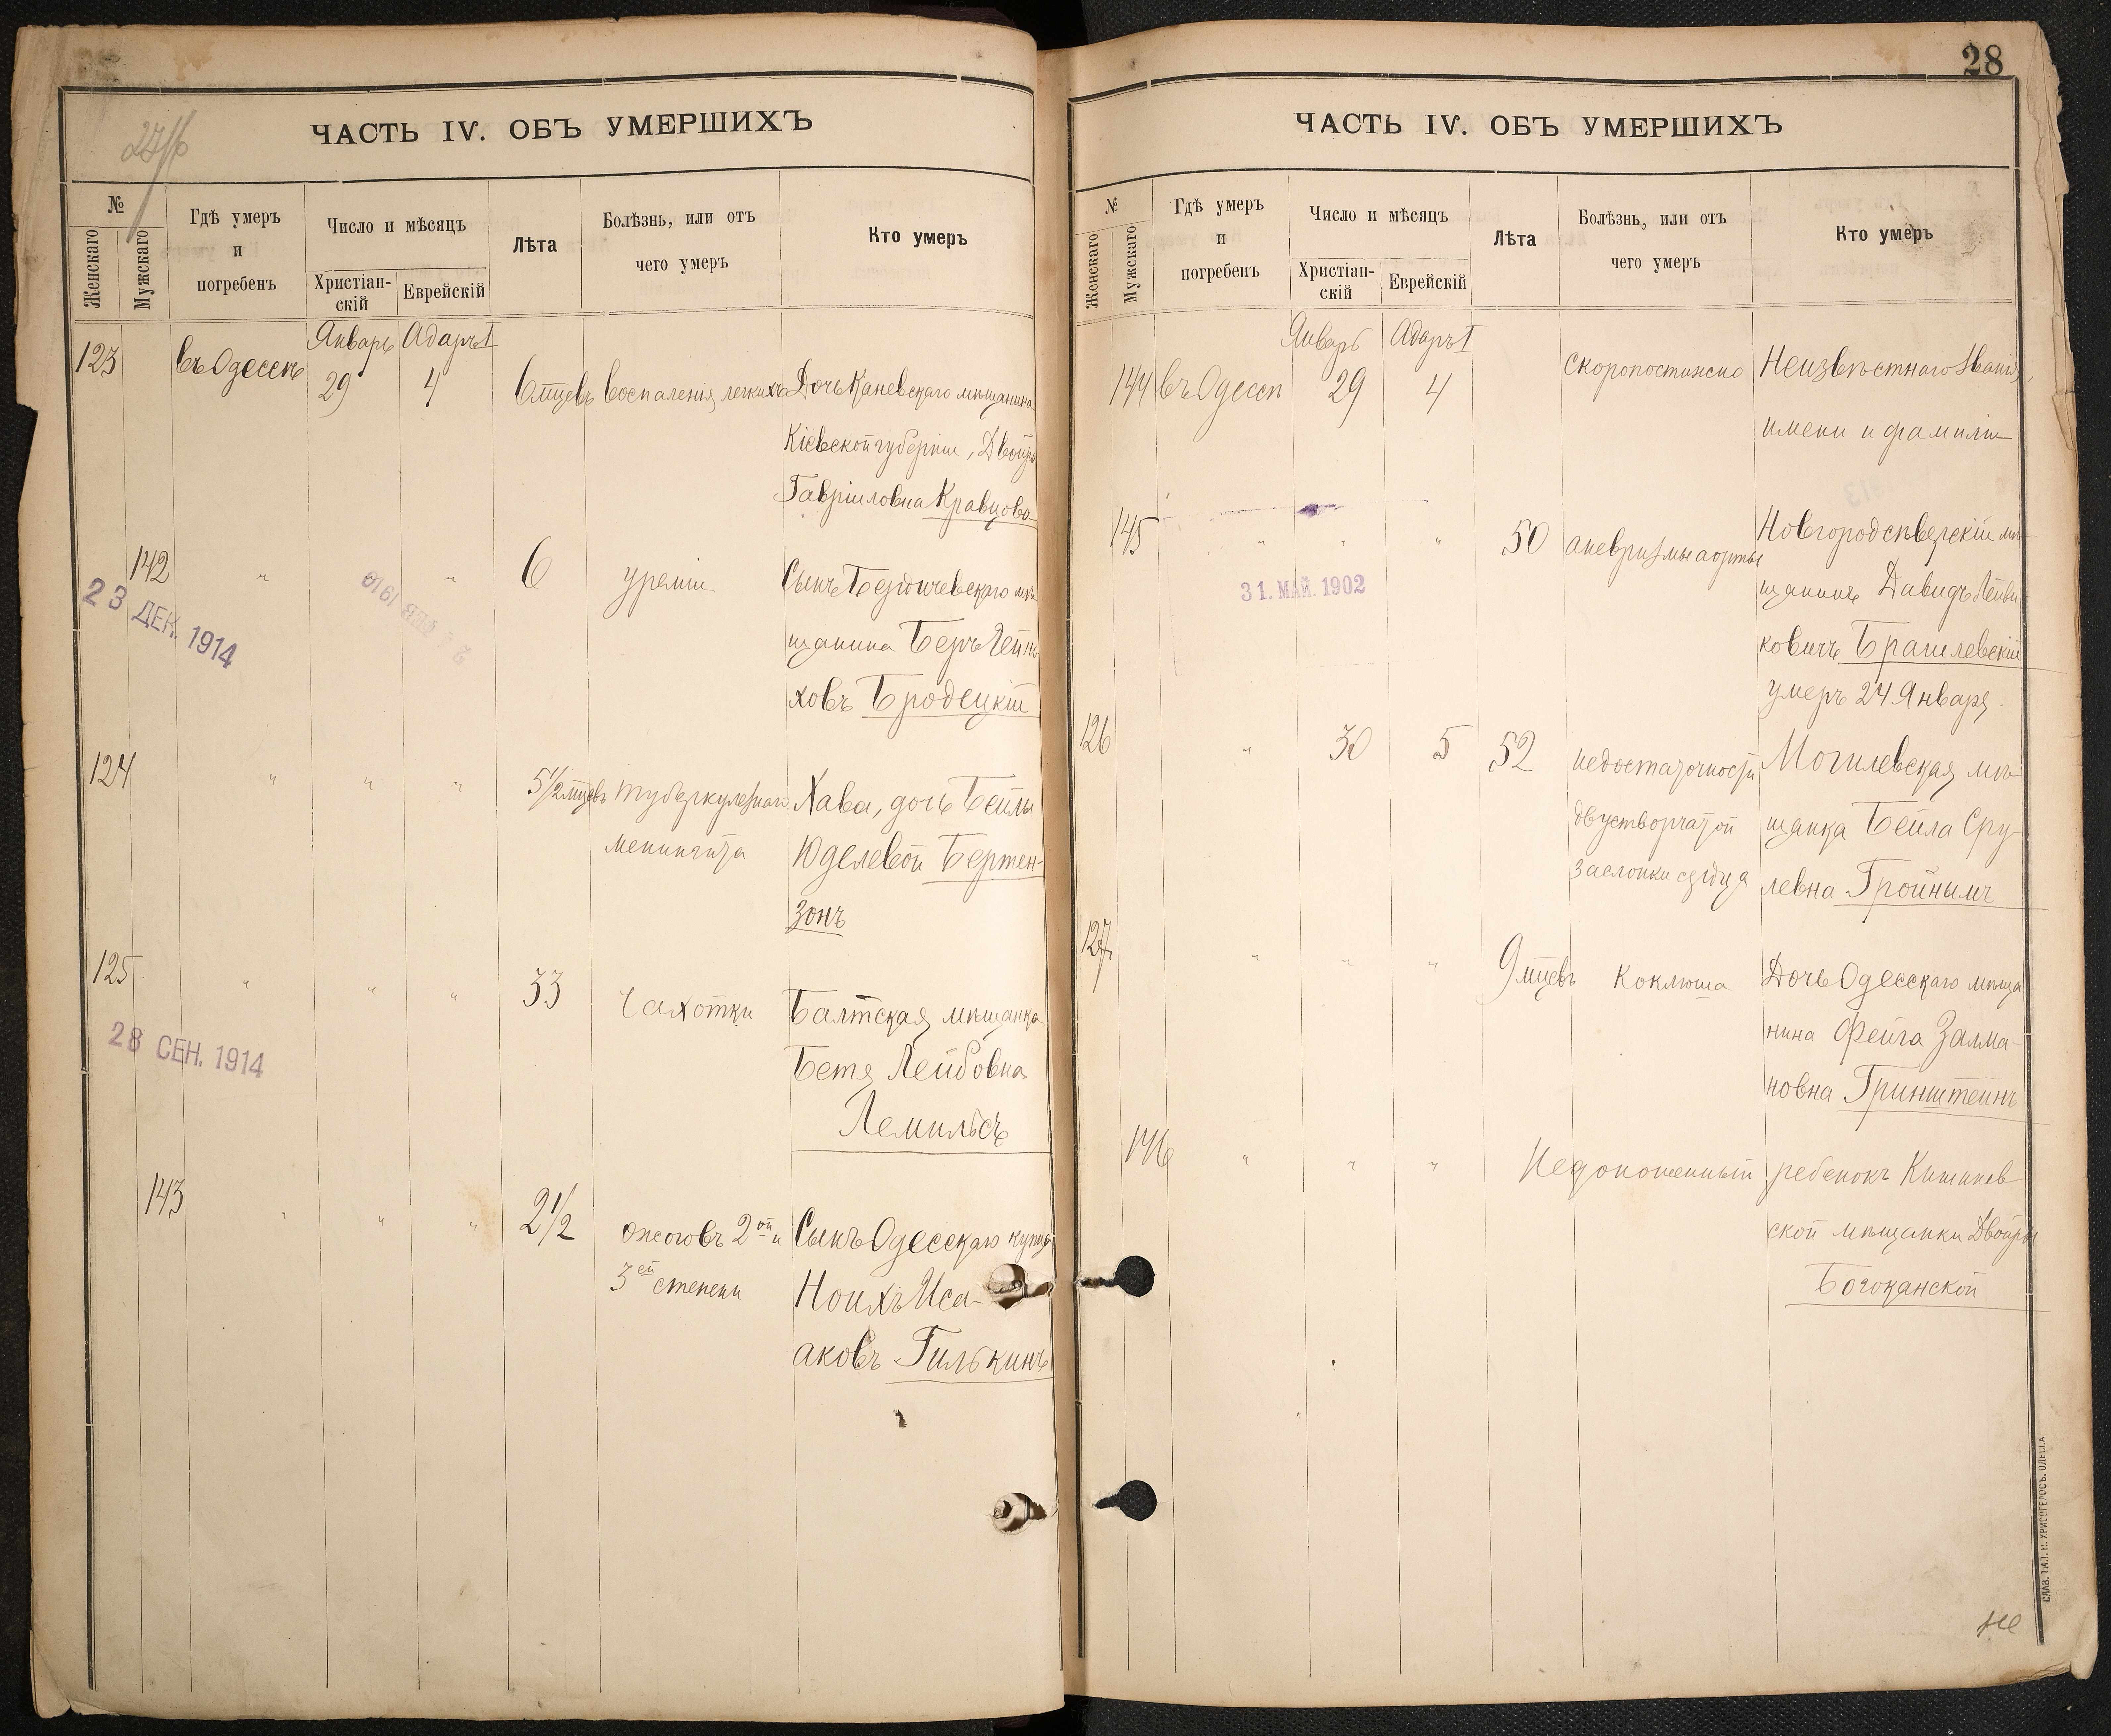 28
ЧАСТЬ IV. ОБЪ УМЕРШИХЪ
№
Женскаго
Мужскаго
Гдѣ умеръ
и
погребенъ
Число и мѣсяцъ
Христіан-
скій
Еврейскій
Лѣта
Болѣзнь, или отъ
чего умеръ
Кто умеръ
Январь Адаръ I
123 въ Одессѣ 29 4 6 мцевъ воспаленія легкихъ Дочь Каневскаго мѣщанина
Кіевской губерніи, Двойра
Гавріиловна Кравцова
142 " " 6 уреміи Сынъ Бердичевскаго мѣ-
щанина Беръ Гейно
ховъ Бродецкій
23 ДЕК. 1914
124 " " " 5 1/2 мцевъ туберкулезнаго Хава, дочь Бейлы
менингита Юделевой Бертен-
зонъ
125 " " " 33 Чахотки Балтская мѣщанка
Бетя Лейбовна
Лемильсъ
28 СЕН. 1914
143 " " " 2 1/2 ожоговъ 2ой и Сынъ Одесскаго купца
3ей степени Ноихъ Иса-
аковъ Гилькинъ
ЧАСТЬ IV. ОБЪ УМЕРШИХЪ
№
Женскаго
Мужскаго
Гдѣ умеръ
и
погребенъ
Число и мѣсяцъ
Христіан-
скій
Еврейскій
Лѣта
Болѣзнь, или отъ
чего умеръ
Кто умеръ
Январь Адаръ I
144 въ Одессѣ 29 4 скоропостижно Неизвѣстнаго званія,
имени и фамиліи
145 " " " 50 аневризмы аорты Новгородсѣверскій мѣ-
щанинъ Давидъ
ковичъ Брагилевскій
умеръ 24 Января.
31. МАЙ. 1902
126 " 30 5 52 недостаточности Могилевская мѣ-
двустворчатой щанка Бейла Сру-
заслонки сердца левна Гройнымъ
127 " " " 9 мцевъ Коклюша Дочь Одесскаго мѣща
нина Фейга Залма-
новна Гринштейнъ
146 " " " Недоношенный ребенокъ Кишинев-
ской мѣщанки Двойры
Богоканской